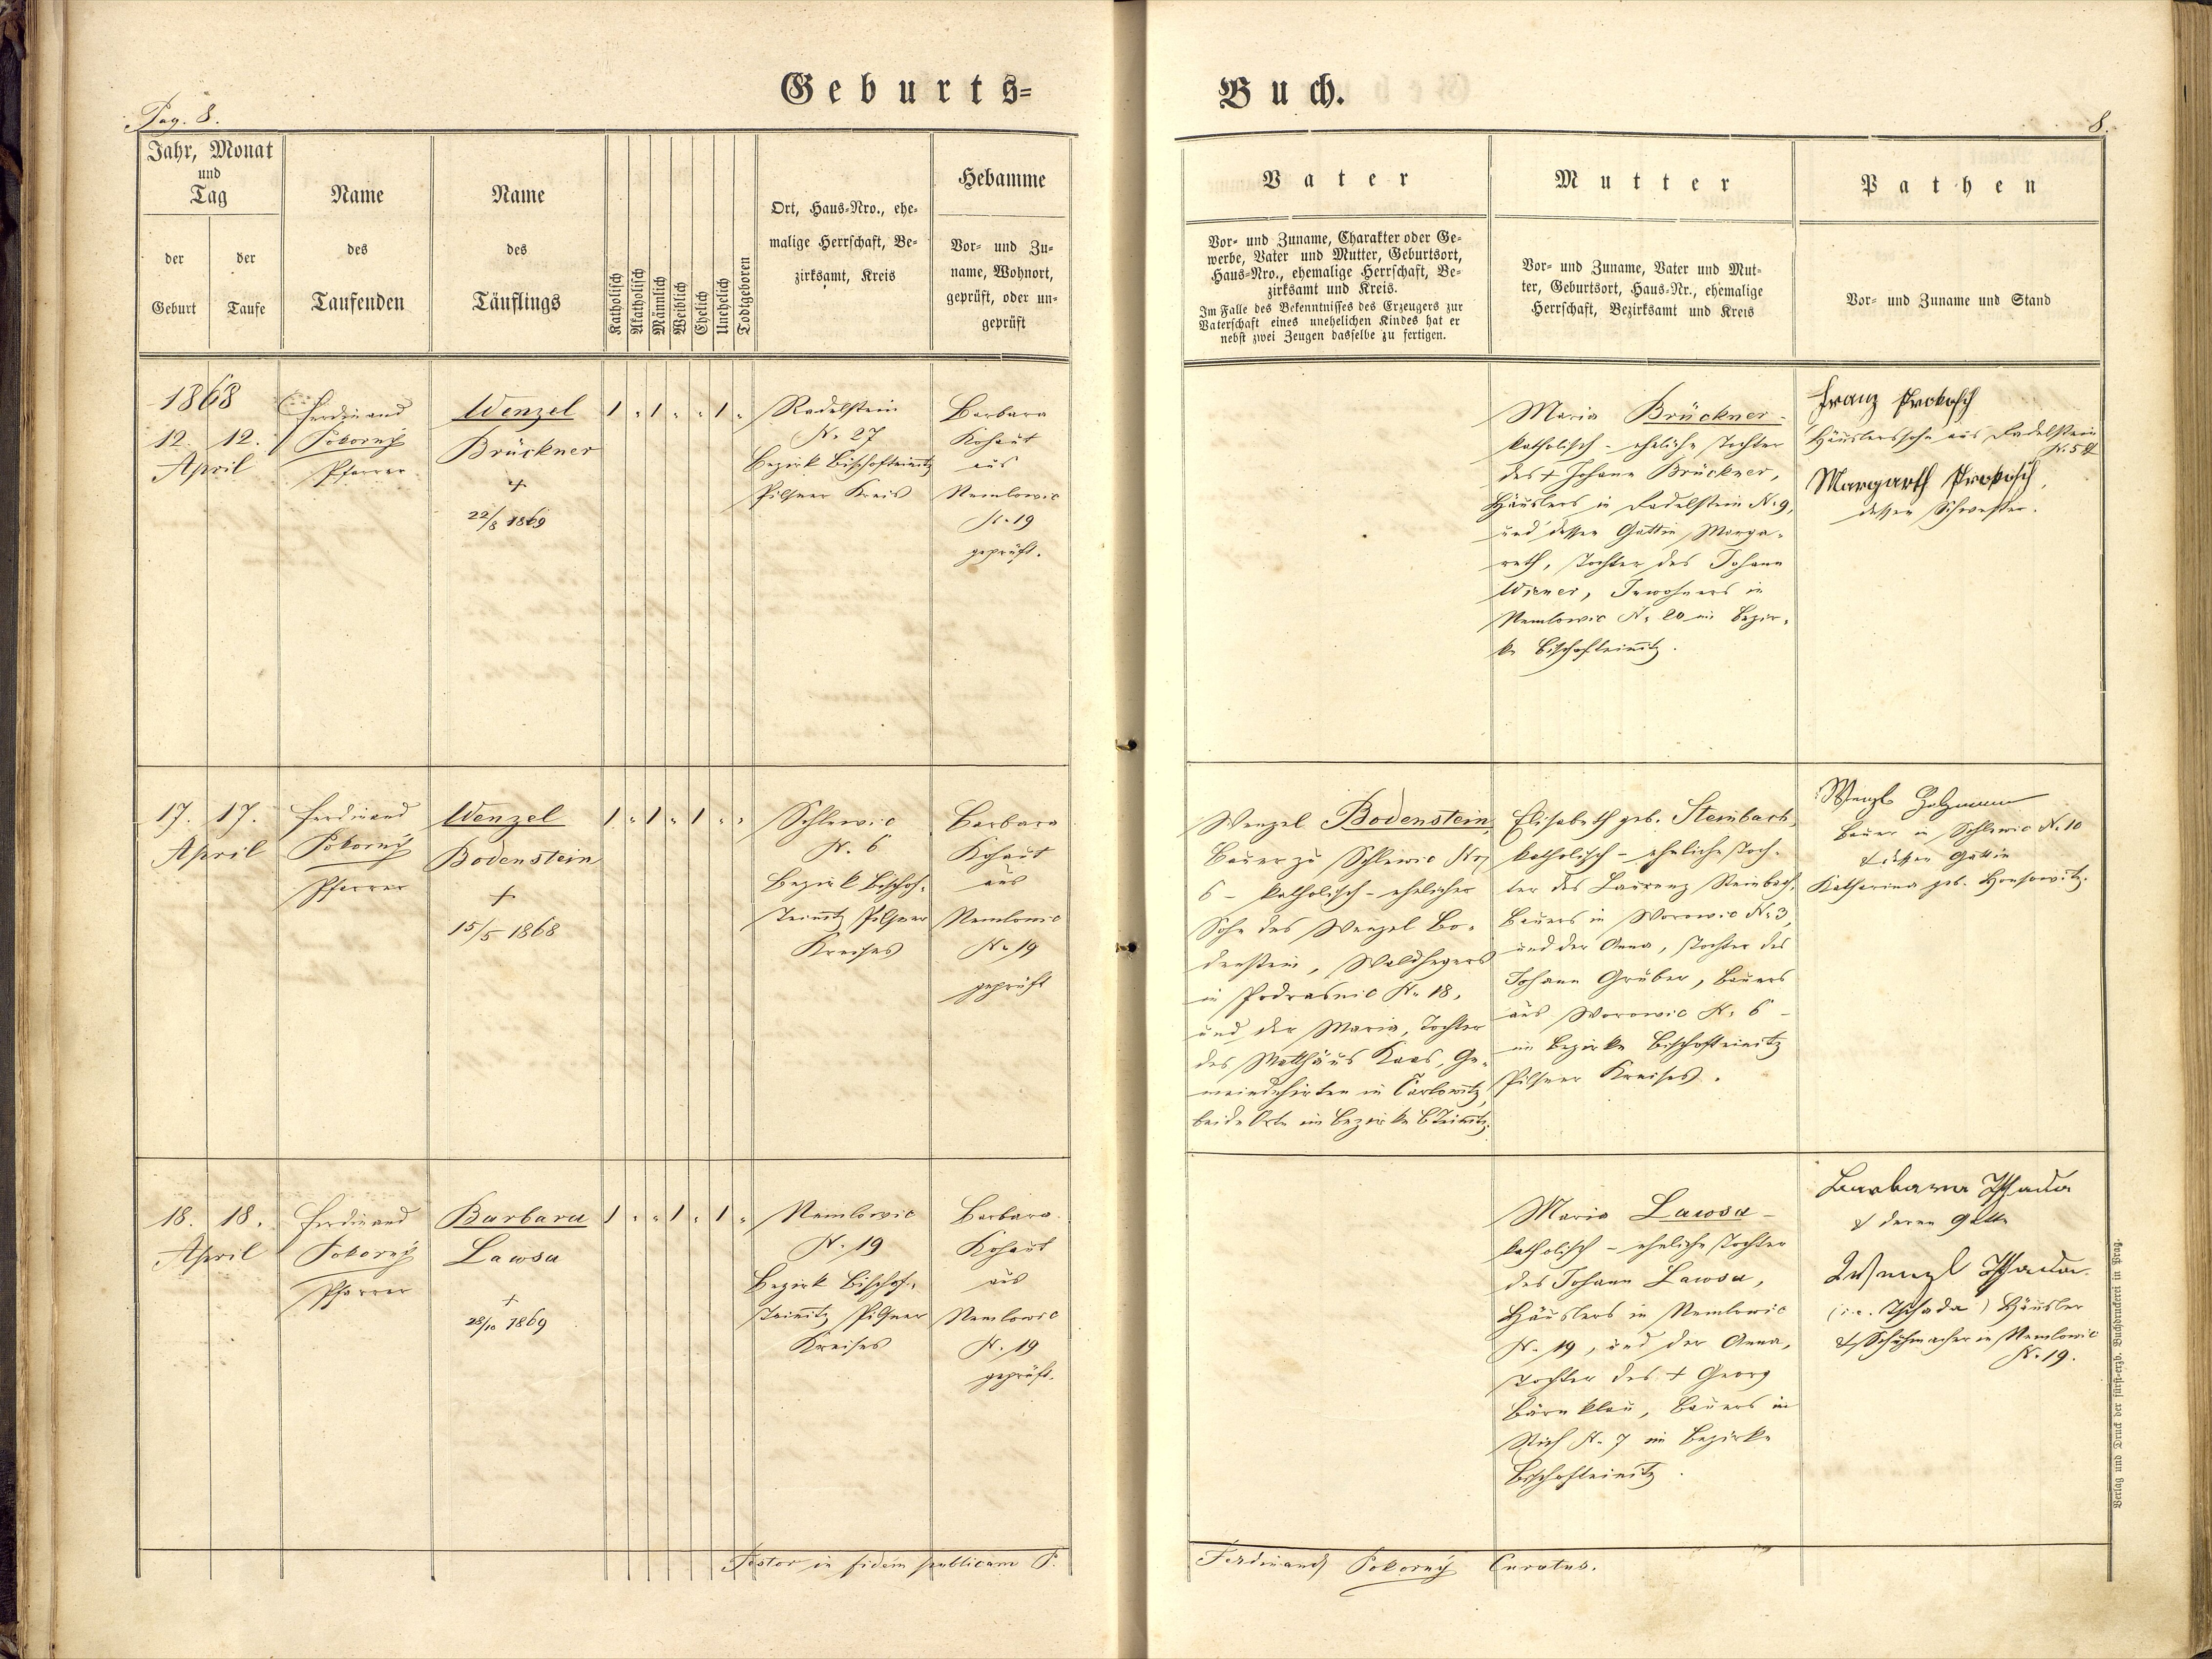 Geburts=
Buch.
Pag. 8.
8.
Jahr, Monat
und
Tag
der
Geburt
der
Taufe
Name
des
Taufenden
Name
des
Täuflings
Katholisch
Akatholisch
Männlich
Weiblich
Ehelich
Unehelich
Todtgeboren
Ort, Haus=Nro., ehe=
malige Herrschaft, Be=
zirksamt, Kreis
Hebamme
Vor= und Zu=
name, Wohnort,
geprüft, oder un=
geprüft
Vater
Vor= und Zuname, Charakter oder Ge=
werbe, Vater und Mutter, Geburtsort,
Haus=Nro., ehemalige Herrschaft, Be=
zirksamt und Kreis.
Im Falle des Bekenntnisses des Erzeugers zur
Vaterschaft eines unehelichen Kindes hat er
nebst zwei Zeugen dasselbe zu fertigen.
Mutter
Vor= und Zuname, Vater und Mut=
ter, Geburtsort, Haus=Nr., ehemalige
Herrschaft, Bezirksamt und Kreis
Pathen
Vor= und Zuname und Stand
1868
12. 12.
April
Ferdinand
Pokorný
Pfarrer
Wenzel
Brückner
+
22/8 1869
1 " 1 " " 1 "
Radelstein
N. 27
Bezirk Bischofteinitz
Pilsner Kreis
Barbara
Kohaut
aus
Nemlowic
N. 19
geprüft.
Maria Brückner -
katholisch - eheliche Tochter
des + Johann Brückner,
Häuslers in Radelstein N. 9,
und dessen Gattin Marga=
reth, Tochter des Johann
Wiener, Inwohners in
Nemlowic N. 20 im Bezir=
ke Bischofteinitz.
Franz Prokosch
Häuslerssohn aus Radelstein
Margareth Prokosch,
dessen Schwester.
17. 17.
April
Ferdinand
Pokorný
Pfarrer
Wenzel
Bodenstein
+
15/5 1868
1 " 1 " 1 " "
Schlewic
N. 6
Bezirk Bischof=
teinitz Pilsner
Kreises
Barbara
Kohaut
aus
Nemlowic
N. 19
geprüft
Wenzel Bodenstein,
Bauer zu Schlewic Nr.
6 - katholisch - ehelicher
Sohn des Wenzel Bo=
denstein, Waldhegers
in Podrasnic N. 18,
und der Maria, Tochter
des Matthäus Kaas, Ge=
meindehirten in Čarlowitz,
beide Orte im Bezirke BTeinitz.
Elisabeth geb. Steinbach,
katholisch - eheliche Toch=
ter des Laurenz Steinbach,
Bauers in Worowic N. 3,
und der Anna, Tochter des
Johann Gruber, Bauers
aus Worowic N. 6 -
im Bezirke Bischofteinitz
Pilsner Kreises.
Wenzl Holzmann
Bauer in Schlewic N. 10
& dessen Gattin
Katharina geb.
18. 18.
April
Ferdinand
Pokorný
Pfarrer
Barbara
Lawsa
+
28/10 1869
1 " " 1 " 1 "
Nemlowic
N. 19
Bezirk Bischof=
teinitz Pilsner
Kreises
Barbara
Kohaut
aus
Nemlowic
N. 19
geprüft.
Maria Lawsa -
katholisch - eheliche Tochter
des Johann Lawsa,
Häuslers in Nemlowic
N. 19, und der Anna,
Tochter des + Georg
Bärnklau, Bauers in
N. 7 im Bezirke
Bischofteinitz.
Barbara Tschada
& deren Gatte
Wenzl Tschada
(i.e. Tschada) Häusler
& Schuhmacher in Nemlowic
N. 19.
Testor in fidem publicam P.
Ferdinand Pokorný Curatus.
Verlag und Druck der fürst=erzb. Buchdruckerei in Prag.